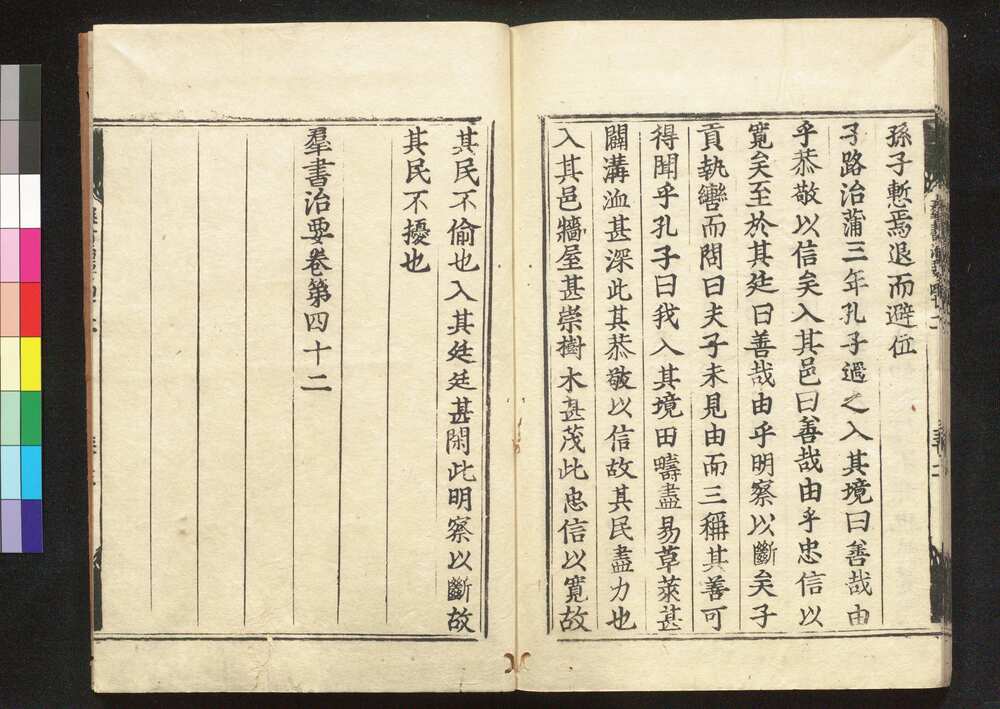 孫子慙焉退而避位
子路治蒲三年孔子過之入其境曰善哉由
乎恭敬以信矣入其邑曰善哉由乎忠信以
寬矣至於其廷曰善哉由乎明察以斷矣子
貢執轡而問曰夫子未見由而三稱其善可
得聞乎孔子曰我入其境田疇盡易草萊甚
闢溝洫甚深此其恭敬以信故其民盡力也
入其邑牆屋甚崇樹木甚茂此忠信以寬故
其民不偷也入其廷廷甚閑此明察以斷故
其民不擾也
羣書治要卷第四十二